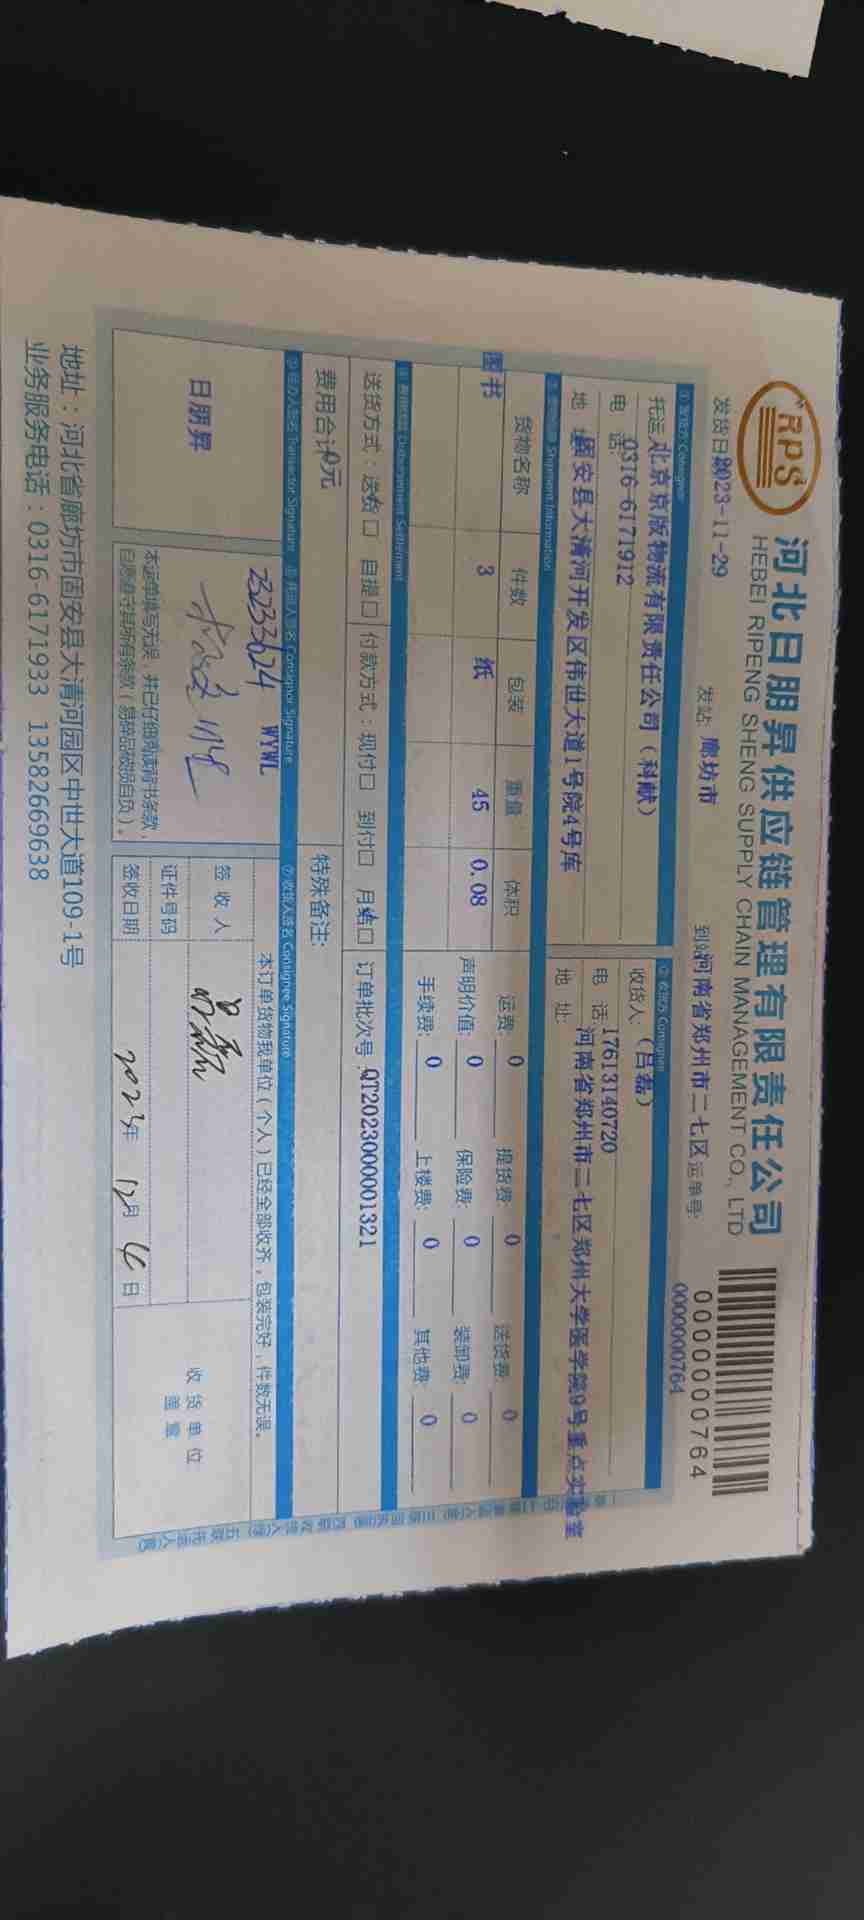 RPS
河北日朋昇供应链管理有限责任公司
HEBEI RIPENG SHENG SUPPLY CHAIN MANAGEMENT CO., LTD
0000000764
发货日期2023-11-29 发站 廊坊市 到站河南省郑州市二七区 运单号: 0000000764
①发货方 Consignor ②收货方 Consignee
托运人北京京版物流有限责任公司（科献） 收货人:（吕磊）
电 话:0316-6171912 电 话17613140720
地 址固安县大清河开发区伟世大道1号院4号库 地 址: 河南省郑州市二七区郑州大学医学院9号重点实验室
Shipment Information
货物名称 件数 包装 重量 体积 运费: 0 提货费: 0 送货费: 0
图书 3 纸 45 0.08 声明价值: 0 保险费: 0 装卸费: 0
手续费: 0 上楼费: 0 其他费: 0
Disbursement Settlement
送货方式：送货口 自提口 付款方式：现付口 到付口 月结口 订单批次号:QT2023000001321
费用合计:0元 特殊备注:
经办人签名 Transactor Signature 托运人签名 Consignor Signature ⑦收货人签名 Consignee Signature
日朋昇
WYWL
本运单填写无误，并已仔细阅读背书条款，
自愿遵守其所有条款（易碎品破损自负）。
本订单货物我单位（个人）已经全部收齐，包装完好，件数无误。
签 收 人 吕磊
证件号码
签收日期 2023年 12月 4日
收 货 单 位
盖 章
地址：河北省廊坊市固安县大清河园区中世大道109-1号
业务服务电话：0316-6171933 13582669638